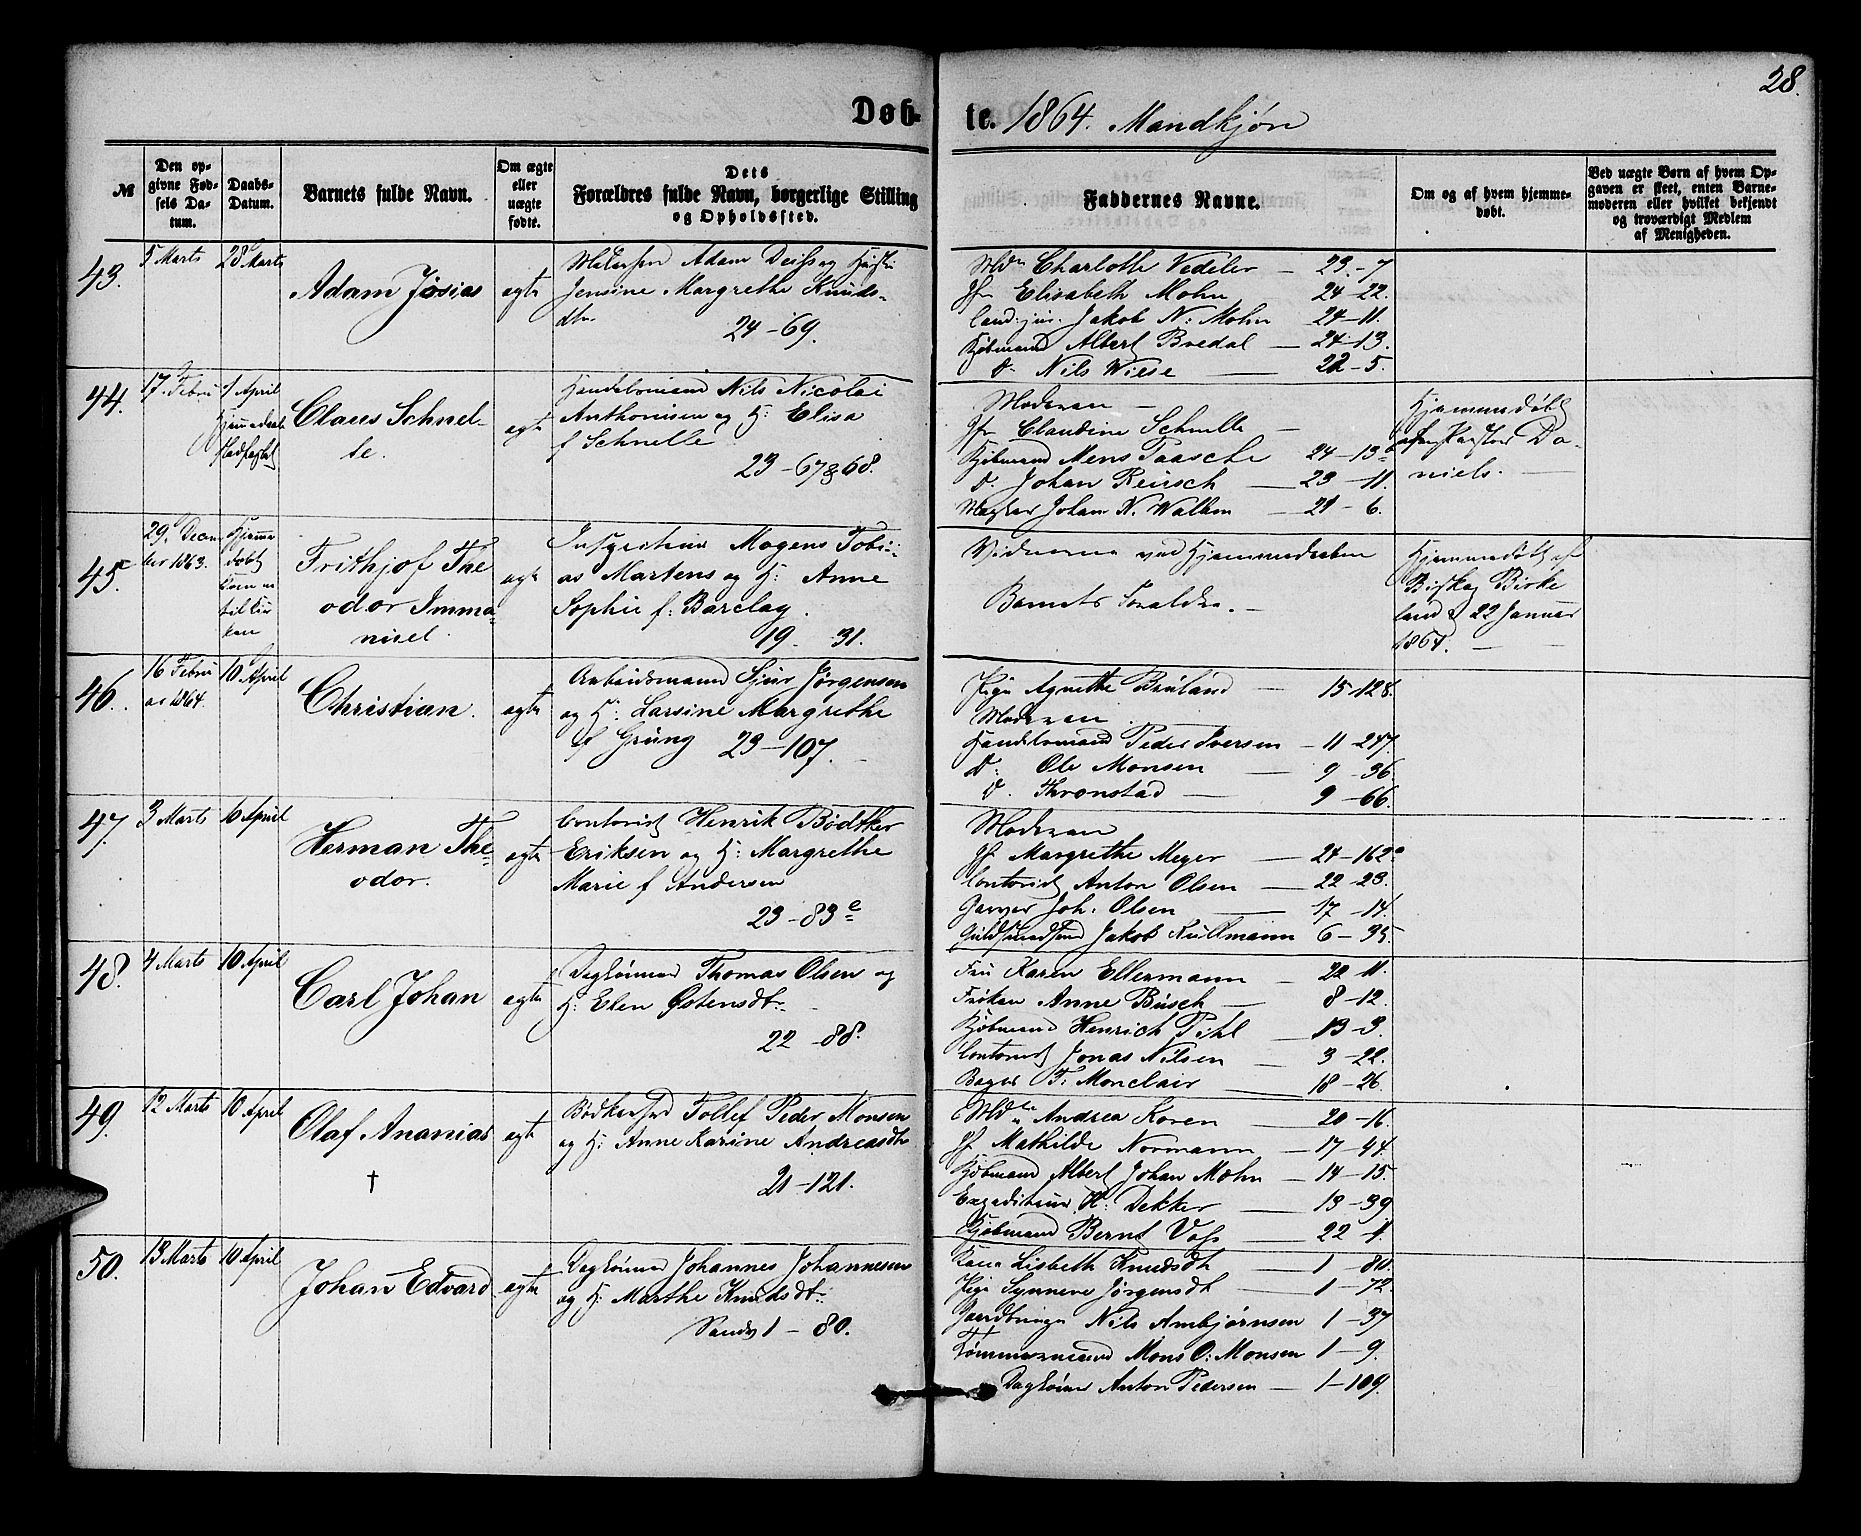 28.
Døb-
te. 1864. Mandkjøn
№
Den op-
givne Fød-
sels Da-
tum.
Daabs-
Datum.
Barnets fulde Navn.
Om ægte
eller
uægte
fødte.
Dets
Forældres fulde Navn, borgerlige Stilling
og Opholdssted.
Faddernes Navne.
Om og af hvem hjemme-
døbt.
Ved uægte Børn af hvem Op-
gaven er skeet, enten Barne-
moderen eller hvilket bekjendt
og troværdigt Medlem
af Menigheden.
43.
5 Marts
28 Marts
Adam Josias
ægte
Adam og
Jensine Margrethe Knuds-
dtr.
24-69.
Charlotte Vedeler - 23-7
Jfr Elisabeth Mohn 24-22.
Jakob N: Mohn 24-11.
Kjøbmand Albert Bredal - 24-13.
D. Nils Wiese - 22-5.
44.
17 Febru
1 April
Hjemmedaab
stadfæstet
Claus Schnel-
le.
ægte
Handelsmand Nils Nicolai
Anthonisen og H: Elisa
f Schnelle
23-67&68.
Moderen -
Jfr Claudine Schnelle -
Kjøbmand Mens Taasche 24-13
D. Johan Reusch - 23-11.
Mægler Johan N. Wallem - 21-6.
Hjemmedøbt
af Pastor Da-
niels.
45.
29 Decem
ber 1863.
Hjemme
døbt
kom ei
til Kir
ken
Frithjof The
odor Imma-
nuel.
ægte
Inspecteur Mogens Tobi-
as Martens og H: Anne
Sophie f: Barclay.
19 - 31.
Vidnerne ved Hjemmedaaben
Barnets Forældre. -
Hjemmedøbt af
Biskop Birke
land d 22 Januar
1864.
46.
16 Febru
ar 1864.
10 April
Christian.
ægte
Arbeidsmand Sjur Jørgensen
og H: Larsine Margrethe
f Grung 23-107.
Pige Agnethe Bruland - 15-128.
Moderen.
Handelsmand Peder Iversen - 11-247.
D: Ole Monsen - 9-36.
D. Thronstad - 9-66.
47.
3 Marts
10 April
Herman The-
odor.
ægte
Contorist Henrik Bødtker
Eriksen og H: Margrethe
Marie f Andersen
23-83e
Moderen
Jf Margrethe Meyer - 24-162a
Contorist Anton Olsen - 22-23.
Garver Joh: Olsen - 17-14.
Guldsmedsvend Jakob Kullmann 6-35.
48.
4 Marts
10 April
Carl Johan
ægte
Dagleiner Thomas Olsen og
H: Elen Østensdt.
22-88.
Fru Karen Ellermann - 22-11.
Frøken Anne Busch - 8-12.
Kjøbmand Henrich Pihl - 13-3.
Contorist Jonas Nilsen - 3-22.
Bager T: Monclair - 18-26.
49.
12 Marts
10 April
Olaf Ananias
†
ægte
Bødkersvd Tollef Peder Monsen
og H: Anne Karine Andreasdt
21-121.
Andrea Koren - 20-16.
Jf Mathilde Normann - 17-44.
Kjøbmand Albert Johan Mohn - 14-15.
Expediteur H: Dekker - 13-39
Kjøbmand Bernt Voss - 22-1.
50.
13 Marts
10 April
Johan Edvard
ægte
Dagleiner Johannes Johannesen
og H: Marthe Knudsdt.
Sandv 1-80.
Kone Lisbeth Knudsdt - 1-80.
Pige Synneve Jørgensdt - 1-72.
Nils Ambjørnsen 1-37
Tømmermand Mons O: Monsen 1-9.
Dagleiner Anton Pedersen - 1-109.